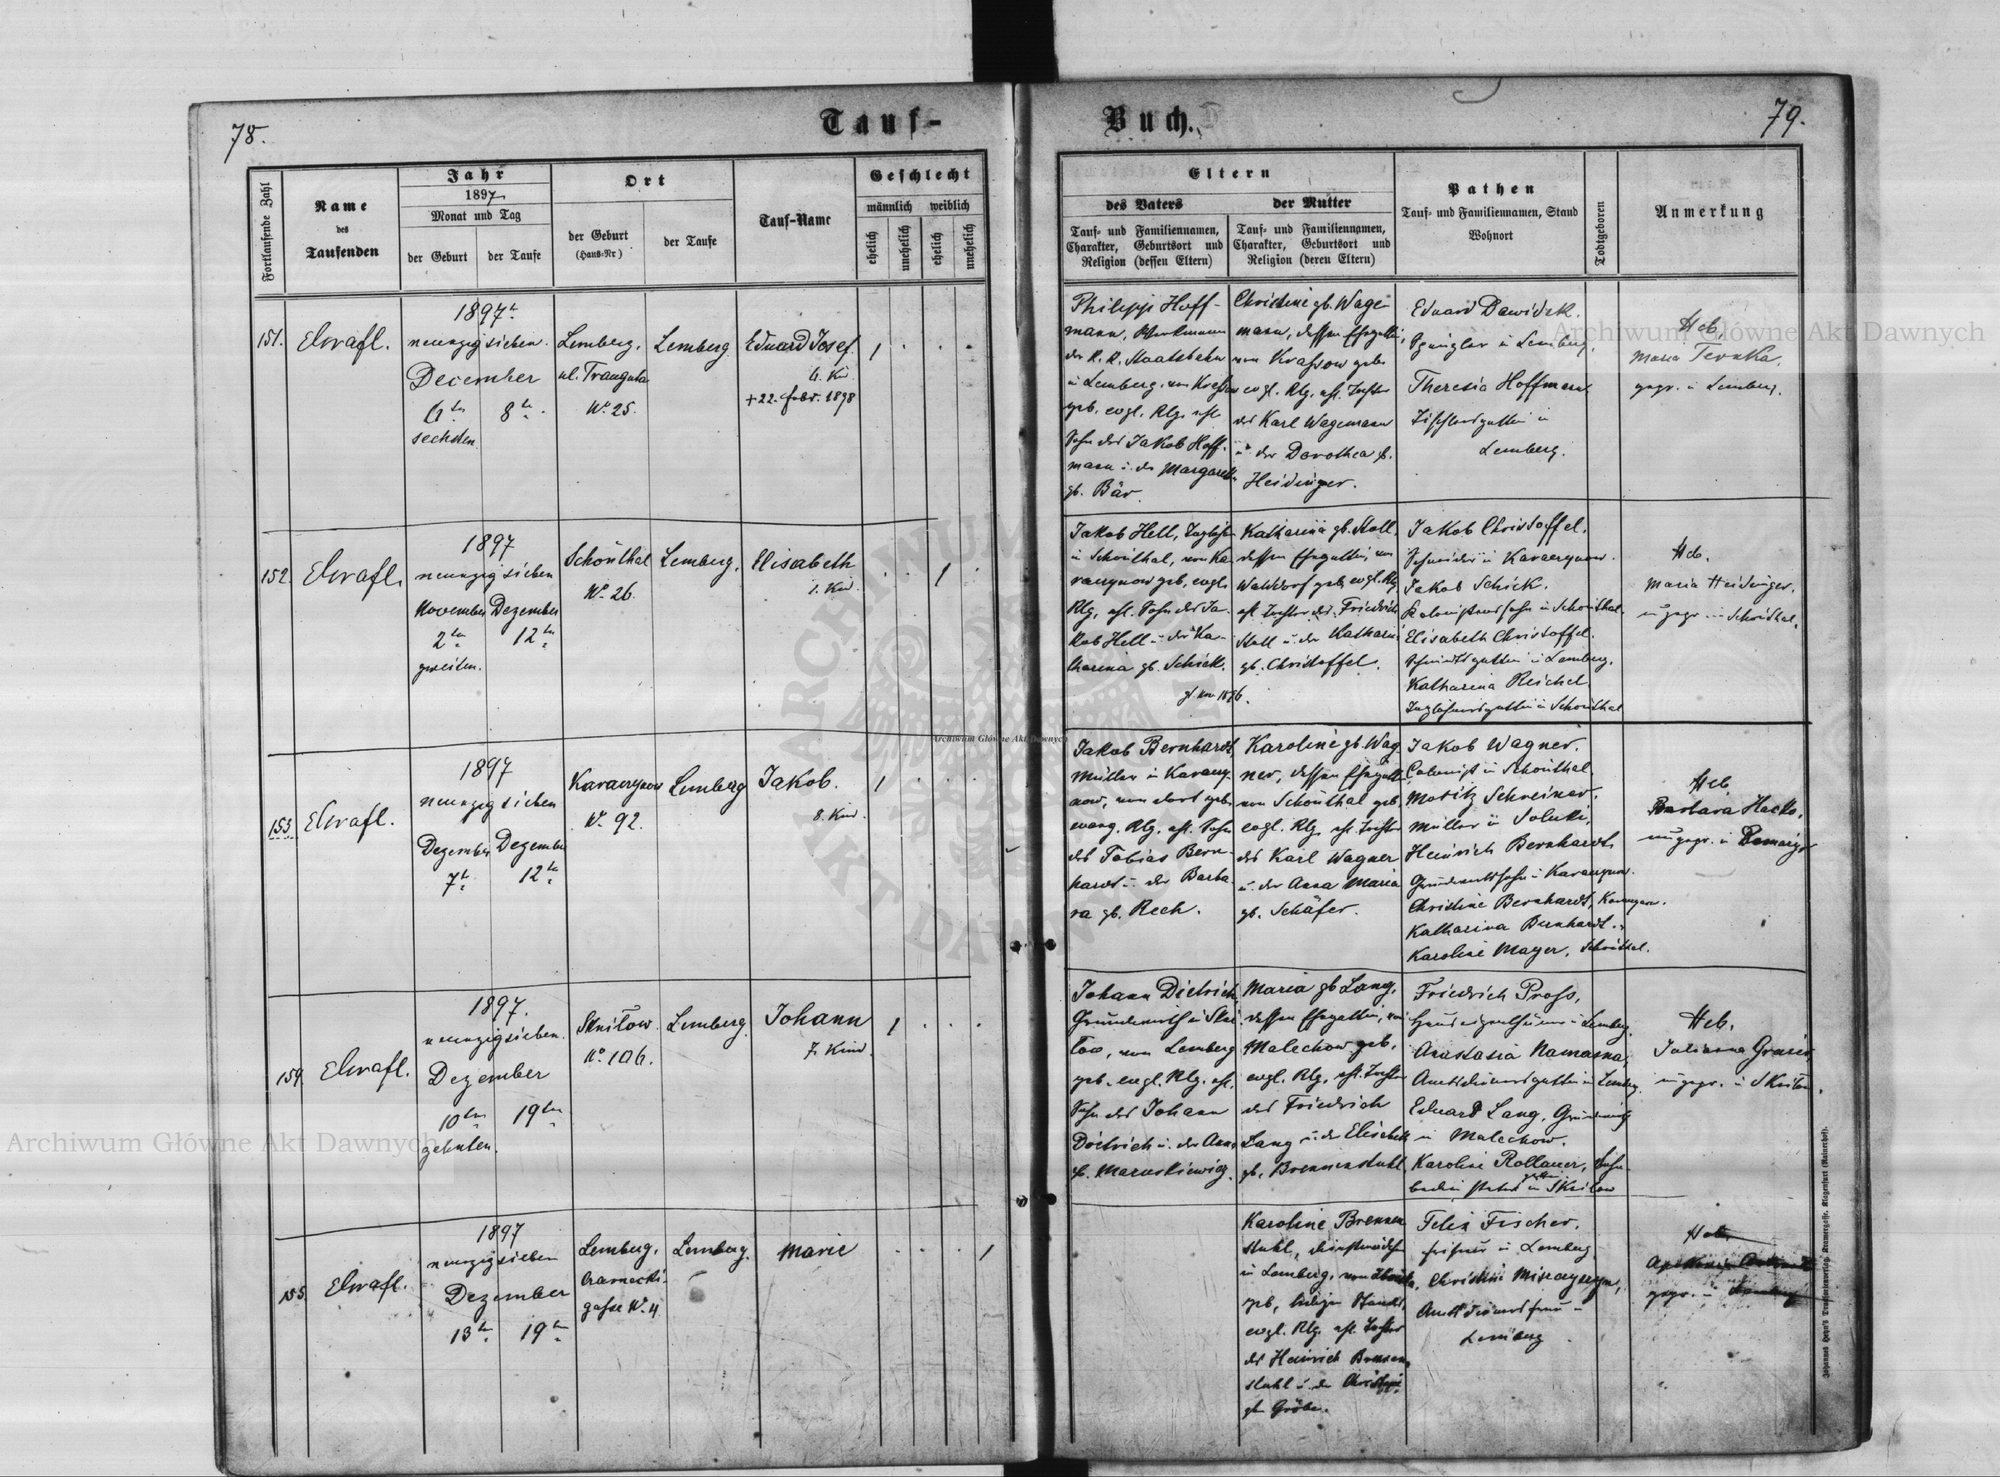 78.
Tauf-
Buch.
79.
Fortlaufende Zahl
Name
des
Taufenden
Jahr
1897
Monat und Tag
der Geburt
der Taufe
Ort
der Geburt
(Haus-Nr)
der Taufe
Tauf-Name
Geschlecht
männlich
weiblich
ehelich
unehelich
ehelich
unehelich
Eltern
des Vaters
Tauf- und Familiennamen,
Charakter, Geburtsort und
Religion (dessen Eltern)
der Mutter
Tauf- und Familiennamen,
Charakter, Geburtsort und
Religion (deren Eltern)
Pathen
Tauf- und Familiennamen, Stand
Wohnort
Todtgeboren
Anmerkung
151.
1897
neunzigsieben.
December
6ten 8te
sechsten
Lemberg,
No 25.
Lemberg
Eduard Josef
6. Kin
+ 22. Febr. 1898
1
Philipp Hoff-
mann, Werkmann
der k. k. Staatsbahn
in Lemberg, von Krassow
geb. evgl. Rlg. ehl.
Sohn des Jakob Hoff-
mann u. der Margareth
gb. Bär.
Christine gb. Wage-
mann, dessen Ehegattin,
von Krassow geb.
evgl. Rlg. ehl. Tochter
des Karl Wagemann
u. der Dorothea gb.
Heidinger.
Eduard Dawidek.
Spengler in Lemberg,
Theresia Hoffmann.
Tischlersgattin in
Lemberg.
Heb.
Maria Teruka,
gepr. in Lemberg.
152.
1897
neunzigsieben
November Dezember
2ten 12ten
zweiten.
Schönthal
No 26.
Lemberg.
Elisabeth
1. Kin.
1
Jakob Hell, Taglöhner
in Schönthal, von Ka-
raczynow geb. evgl.
Rlg. ehl. Sohn des Ja-
kob Hell u. der Ka-
tharina gb. Schick.
Katharina gb. Stoll,
dessen Ehegattin, von
Walddorf geb. evgl. Rlg.
ehl. Tochter des Friedrich
Stoll u. der Katharina
gb. Christoffel.
Jakob Christoffel,
Schneider in Karaczynow.
Jakob Schick.
Kolonistensohn in Schönthal.
Elisabeth Christoffel.
Schmiedsgattin in Lemberg.
Katharina Reichel.
Taglöhnersgattin in Schönthal
Heb.
Maria Heidinger,
ungepr. in Schönthal.
153.
1897
neunzigsieben
Dezember Dezember
7te 12te
Karaczynow
No. 92.
Lemberg
Jakob.
8. Kind.
1
Jakob Bernhardt,
Müller in Karaczy-
now, von dort geb.
evang. Rlg. ehl. Sohn
des Tobias Bern-
hardt u. der Barba-
ra gb. Rech.
Karoline gb. Wag-
ner, dessen Ehegattin
von Schönthal geb.
evgl. Rlg. ehl. Tochter
des Karl Wagner
u. der Anna Maria
gb. Schäfer.
Jakob Wagner.
Colonist in Schönthal.
Moritz Schreiner.
Müller in
Heinrich Bernhardt
Grundwirthssohn in Karaczynow.
Christine Bernhardt, Karaczynow.
Katharina Bernhardt
Karoline Mayer, Schönthal.
Heb.
Barbara Hacks,
ungepr. in
159
1897.
neunzigsieben.
Dezember
10ten 19ten
zehnten.
Sknilow.
No 106.
Lemberg.
Johann
7. Kind.
1
Johann Dietrich,
Grundwirth in Skni-
low, von Lemberg
geb. evgl. Rlg. ehl.
Sohn des Johann
Dietrich u. der Anna
gb. Maruskiewicz.
Maria gb Lang,
dessen Ehegattin, von
Malechow geb.
evgl. Rlg. ehl. Tochter
des Friedrich
Lang u. der Elisabeth
gb. Brennenstuhl.
Friedrich Pross,
Hauseigenthümer in Lemberg.
Anastasia
Amtsdienersgattin in Lemberg.
Eduard Lang, Grundwirth
in Malechow.
Karoline Rollauer,
in Sknilow
Heb.
ungepr. in Sknilow.
155.
1897
neunzigsieben
Dezember
13te 19te
Lemberg,
Czarnecki-
gasse No. 4
Lemberg.
Marie
1
Karoline Brennen
stuhl, Dienstmädchen
in Lemberg,
geb. ledigen Standes,
evgl. Rlg. ehl. Tochter
des Heinrich Brennen-
stuhl u. der
gb. Gröbe.
Felix Fischer.
Friseur in Lemberg.
Christine
Amtsdienersfrau in
Lemberg
Heb.
Archiwum Główne Akt Dawnych
Archiwum Główne Akt Dawnych
Archiwum Główne Akt Dawnych
ARCHIWUM
AKT DAWNYCH